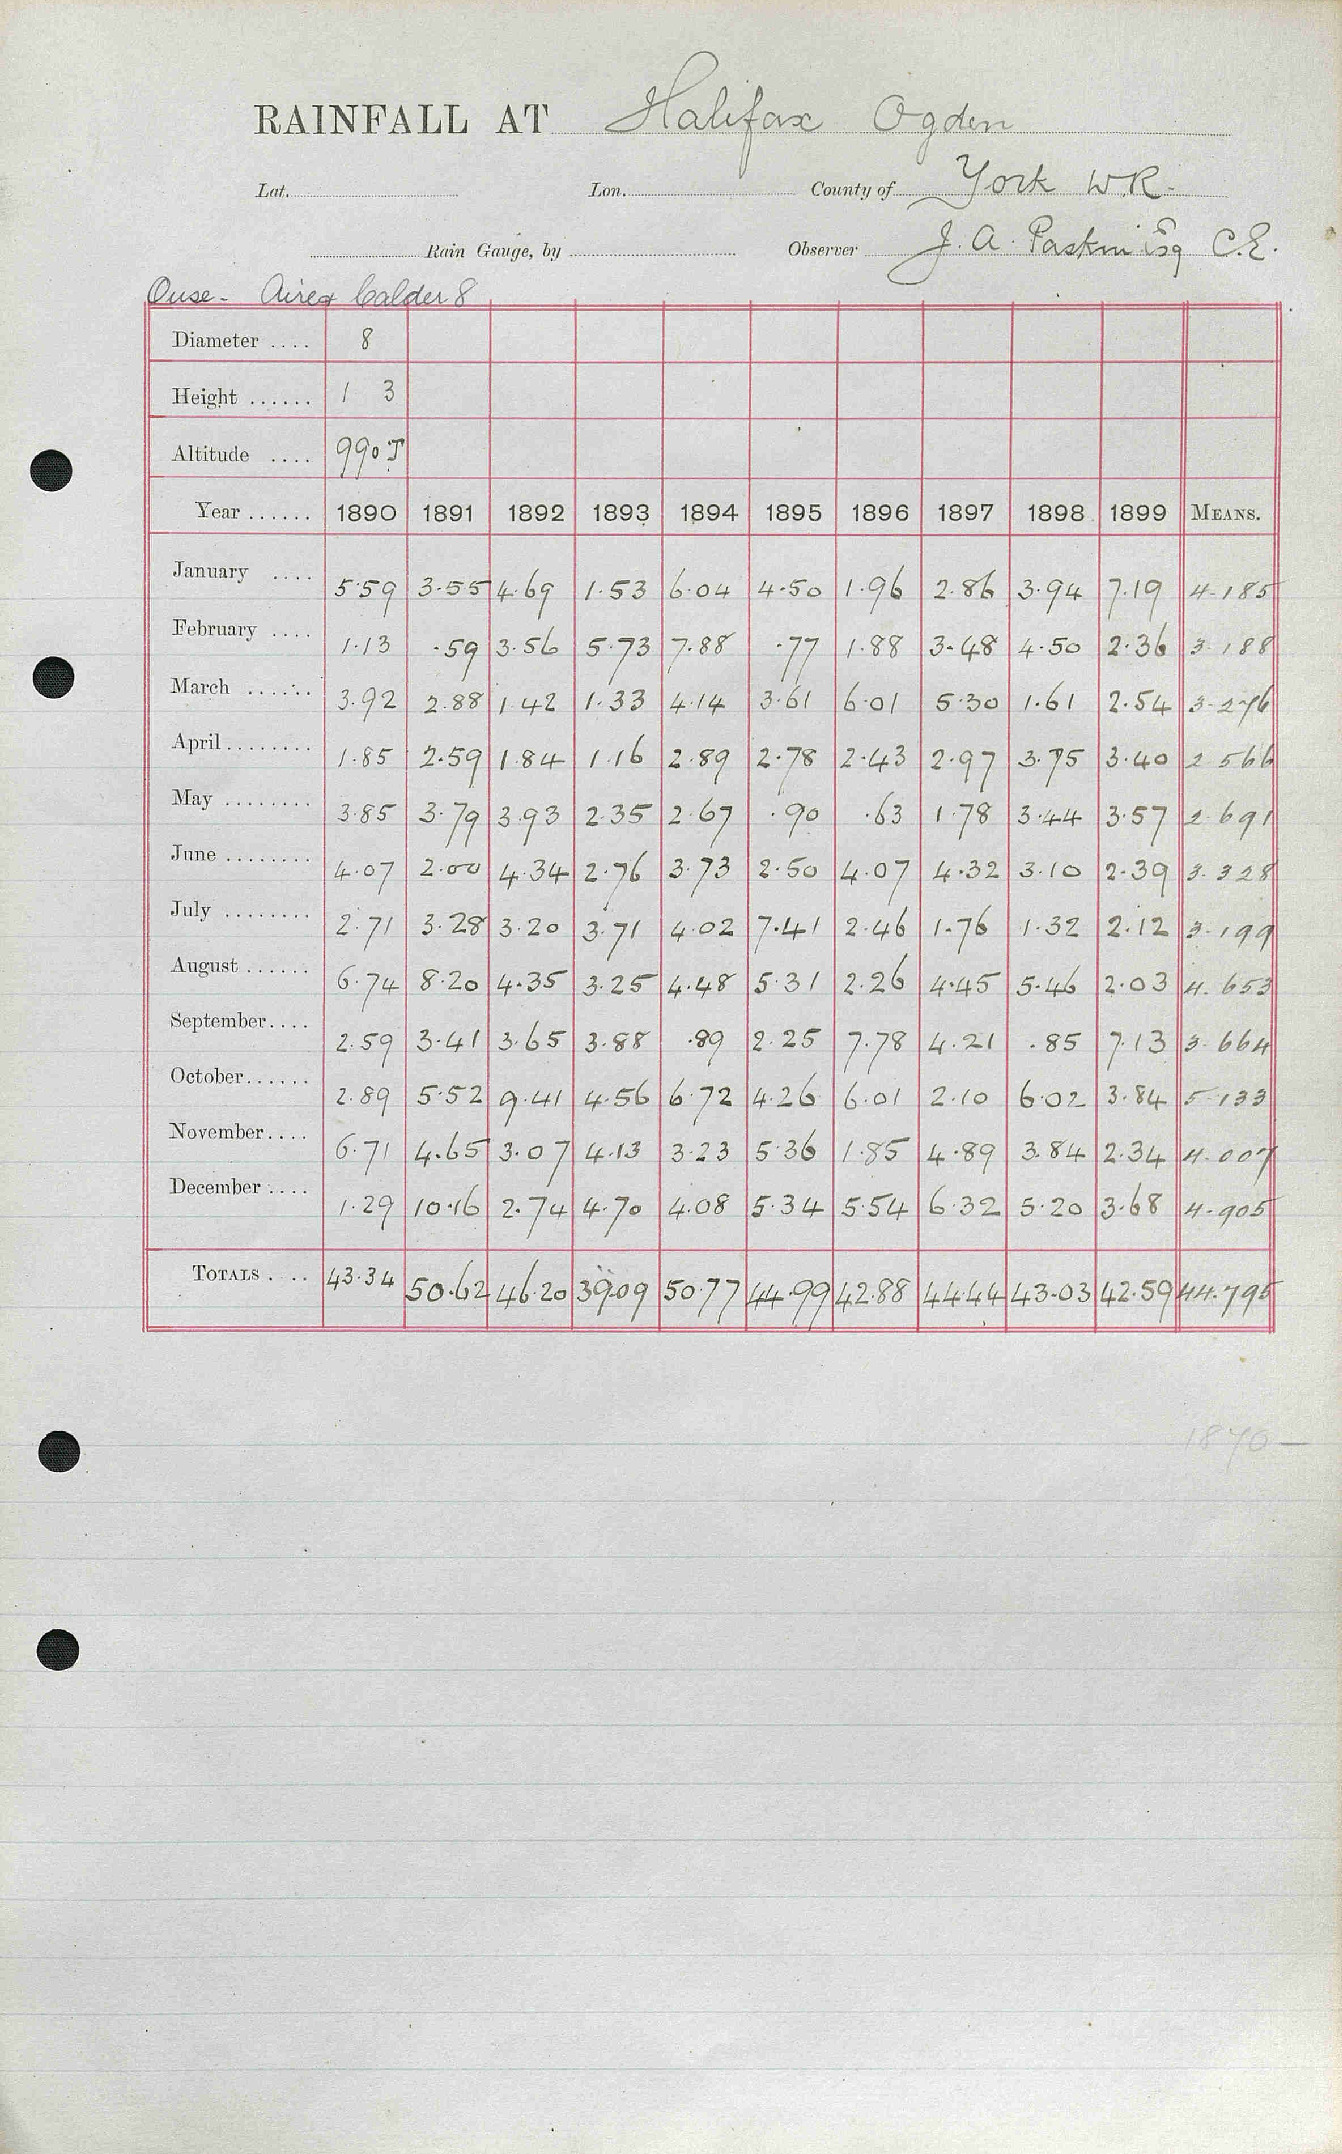 RAINFALL AT Halifax Ogden
Lat. Lon. County of York W.R.
Rain Gauge, by Observer J. A. Paskin Esq C.E.
Ouse - Aire & Calder 8
Diameter .... 8
Height ...... 1 3
Altitude .... 990 T
Year ...... 1890 1891 1892 1893 1894 1895 1896 1897 1898 1899 MEANS.
January .... 5.59 3.55 4.69 1.53 6.04 4.50 1.96 2.86 3.94 7.19 4.185
February .... 1.13 .59 3.56 5.73 7.88 .77 1.88 3.48 4.50 2.36 3.188
March ...... 3.92 2.88 1.42 1.33 4.14 3.61 6.01 5.30 1.61 2.54 3.276
April ........ 1.85 2.59 1.84 1.16 2.89 2.78 2.43 2.97 3.75 3.40 2.566
May ........ 3.85 3.79 3.93 2.35 2.67 .90 .63 1.78 3.44 3.57 2.691
June ........ 4.07 2.00 4.34 2.76 3.73 2.50 4.07 4.32 3.10 2.39 3.328
July ........ 2.71 3.28 3.20 3.71 4.02 7.41 2.46 1.76 1.32 2.12 3.199
August ...... 6.74 8.20 4.35 3.25 4.48 5.31 2.26 4.45 5.46 2.03 4.653
September.... 2.59 3.41 3.65 3.88 .89 2.25 7.78 4.21 .85 7.13 3.664
October...... 2.89 5.52 9.41 4.56 6.72 4.26 6.01 2.10 6.02 3.84 5.133
November.... 6.71 4.65 3.07 4.13 3.23 5.36 1.85 4.89 3.84 2.34 4.007
December .... 1.29 10.16 2.74 4.70 4.08 5.34 5.54 6.32 5.20 3.68 4.905
TOTALS .... 43.34 50.62 46.20 39.09 50.77 44.99 42.88 44.44 43.03 42.59 44.795
1870 —